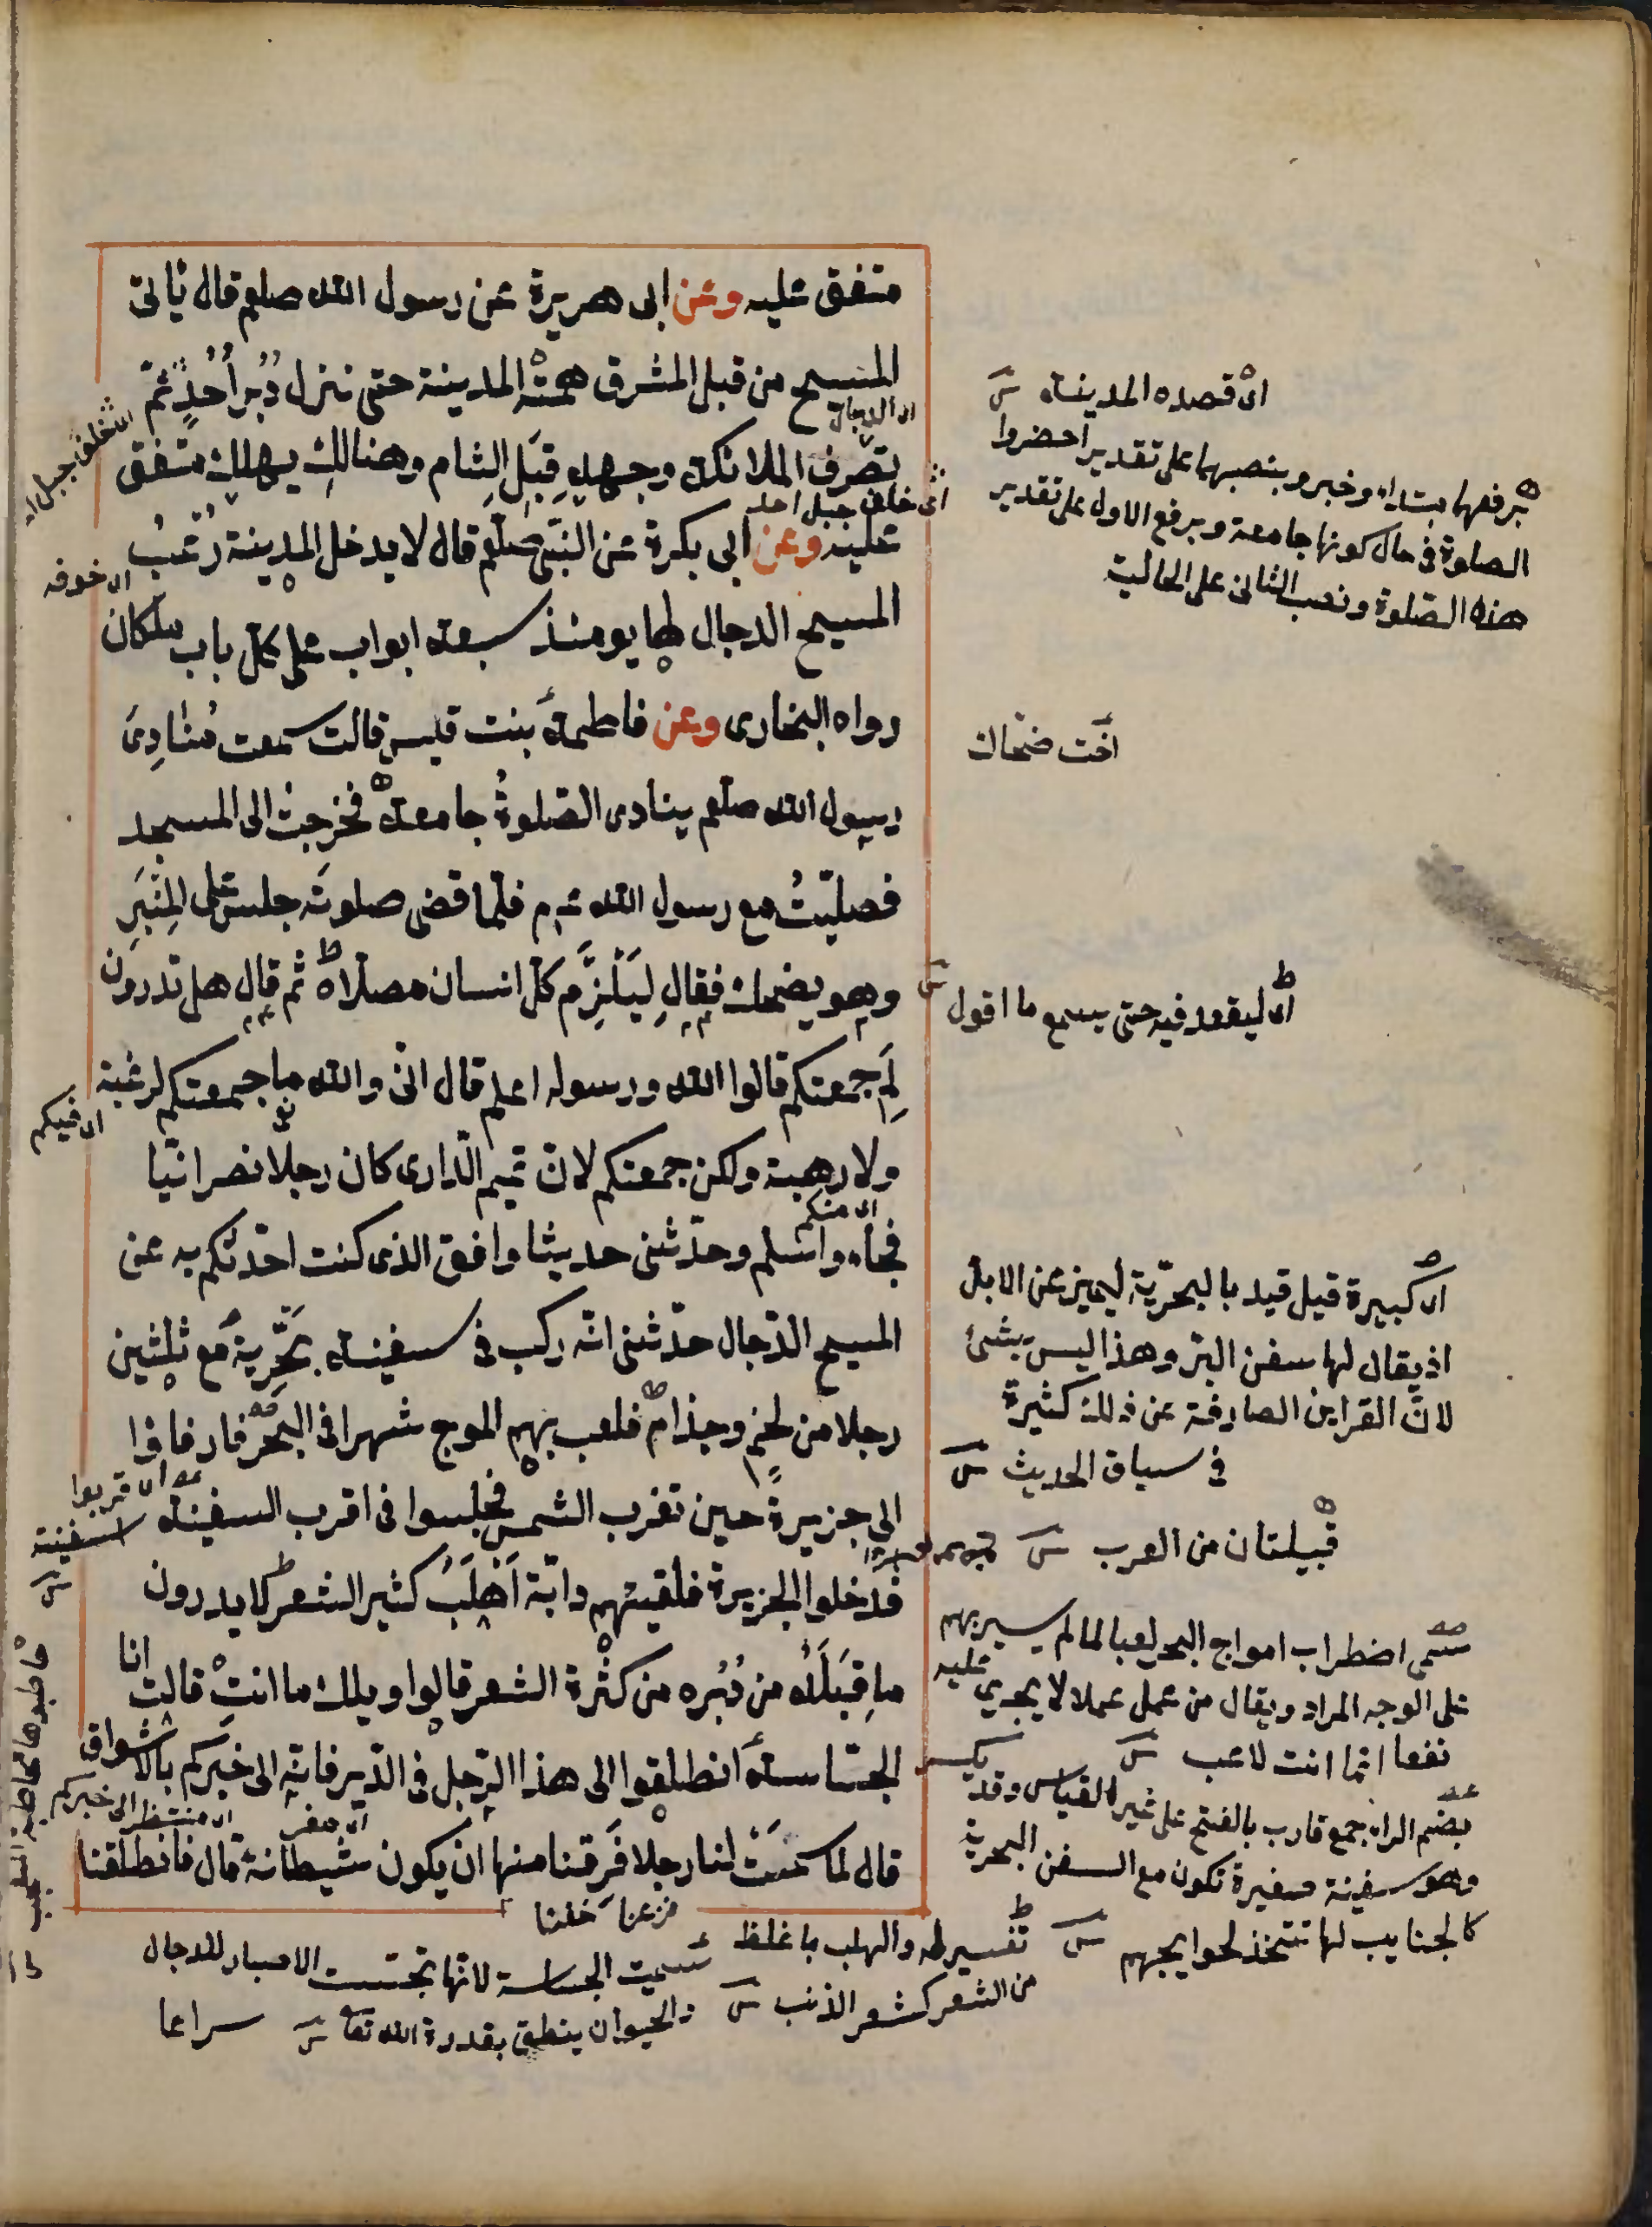 متفق عليه وعن ابى هريرة عن رسول الله صلعم قال يأتى
المسيح من قبل المشرق همته المدينة حتى ينزل دُبر أُحُدٍ ثمّ
تصرف الملائكة وجهه قِبَل الشام وهنالك يهلك متفق
عليه وعن ابى بكرة عن النبى صلعم قال لا يدخل المدينة رُعْبُ
المسيح الدجال لها يومئذ سبعة ابواب على كل باب ملكان
رواه البخارى وعن فاطمة بنت قيس قالت سمعت مُنَادِىَ
رسول الله صلعم ينادى الصلوةُ جامعة فخرجت الى المسجد
فصليّتُ مع رسول الله عم فلما قضى صلوته جلس على المِنْبَرِ
وهو يضحك فقال لِيَلْزَم كل انسان مصلاه ثم قال هل تدرون
لِمَ جمعتكم قالوا الله ورسوله اعلم قال انى والله ما جمعتكم لرغبة
ولا رهبة ولكن جمعتكم لان تميم الدّارى كان رجلا نصرانيّا
فجاء واسلم وحدّثنى حديثا وافق الذى كنت احدثكم به عن
المسيح الدّجال حدّثنى انه ركب فى سفينة بَحْرِية مع ثلثين
رجلا من لخم وجذام فلعب بهم الموج شهرا فى البحر فارفاؤا
الى جزيرة حين تغرب الشمس فجلسوا فى اقرب السفينة
فدخلوا الجزيرة فلقيتهم دابّة اَهْلَبُ كثير الشعر لا يدرون
ما قُبُلُه من دُبُره من كثرة الشعر قالوا ويلك ما انتِ قالت انا
الجسّاسة انطلقوا الى هذا الرجل فى الدّير فانه الى خبركم بالاشواق
قال لما سمّت لنا رجلا فَرِقنا منها ان يكون شيطانة قال فانطلقنا
اى الدجال
اى خلف جبل احد
اى خلف جبل
اى خوفه
اى فيكم
اى منكم
اى قربوا
السفينة
اى منتظر الى خبركم
فزعنا خفنا
سراعا
اى قصده المدينة
برفعهما مبتداء وخبر وبنصبهما على تقدير احضروا
الصلوة فى حال كونها جامعة وبرفع الاول على تقدير
هذه الصلوة ونصب الثانى على الحالية
اخت ضحاك
اى ليقعد فيه حتى يسمع ما اقول
اى كبيرة قيل قيد بالبحرّية ليميز عن الابل
اذ يقال لها سفن البرّ وهذا ليس بشئ
لانّ القراين الصارفة عن ذلك كثيرة
فى سياق الحديث
قبيلتان من العرب
سمى اضطراب امواج البحر لعبا لما لم يسير بهم
على الوجه المراد ويقال من عمل عملا لا يجدى عليه
نفعا انما انت لاعب
بضم الراء جمع قارب بالفتح على غير القياس وقد يكسر
وهو سفينة صغيرة تكون مع السفن البحرية
كالجنايب لها تتخذ لحوايجهم
تفسير له والهلب ما غلظ
من الشعر كشعر الذنب
سميت الجساسة لانها تجسست الاخبار للدجال
والحيوان ينطق بقدرة الله تعا